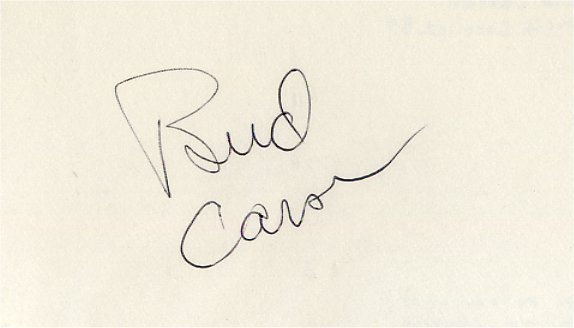 Bud
Carson